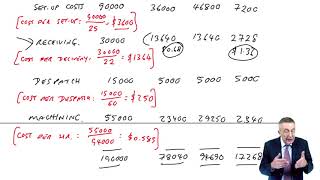 SET-UP COSTS 90000 36000 46800 7200
[COST PER SET-UP: 90000/25 = $3600]
RECEIVING. 30000 13640 13640 2728
$0.68 $1.36
[COST PER DELIVERY: 30000/22 = $1364]
DESPATCH 15000 5000 5000 5000
[COST PER DESPATCH: 15000/60 = $250]
MACHINING. 55000 23400 29250 2340
[COST PER HR. = 55000/94000 = $0.585]
190000 78040 94690 17268